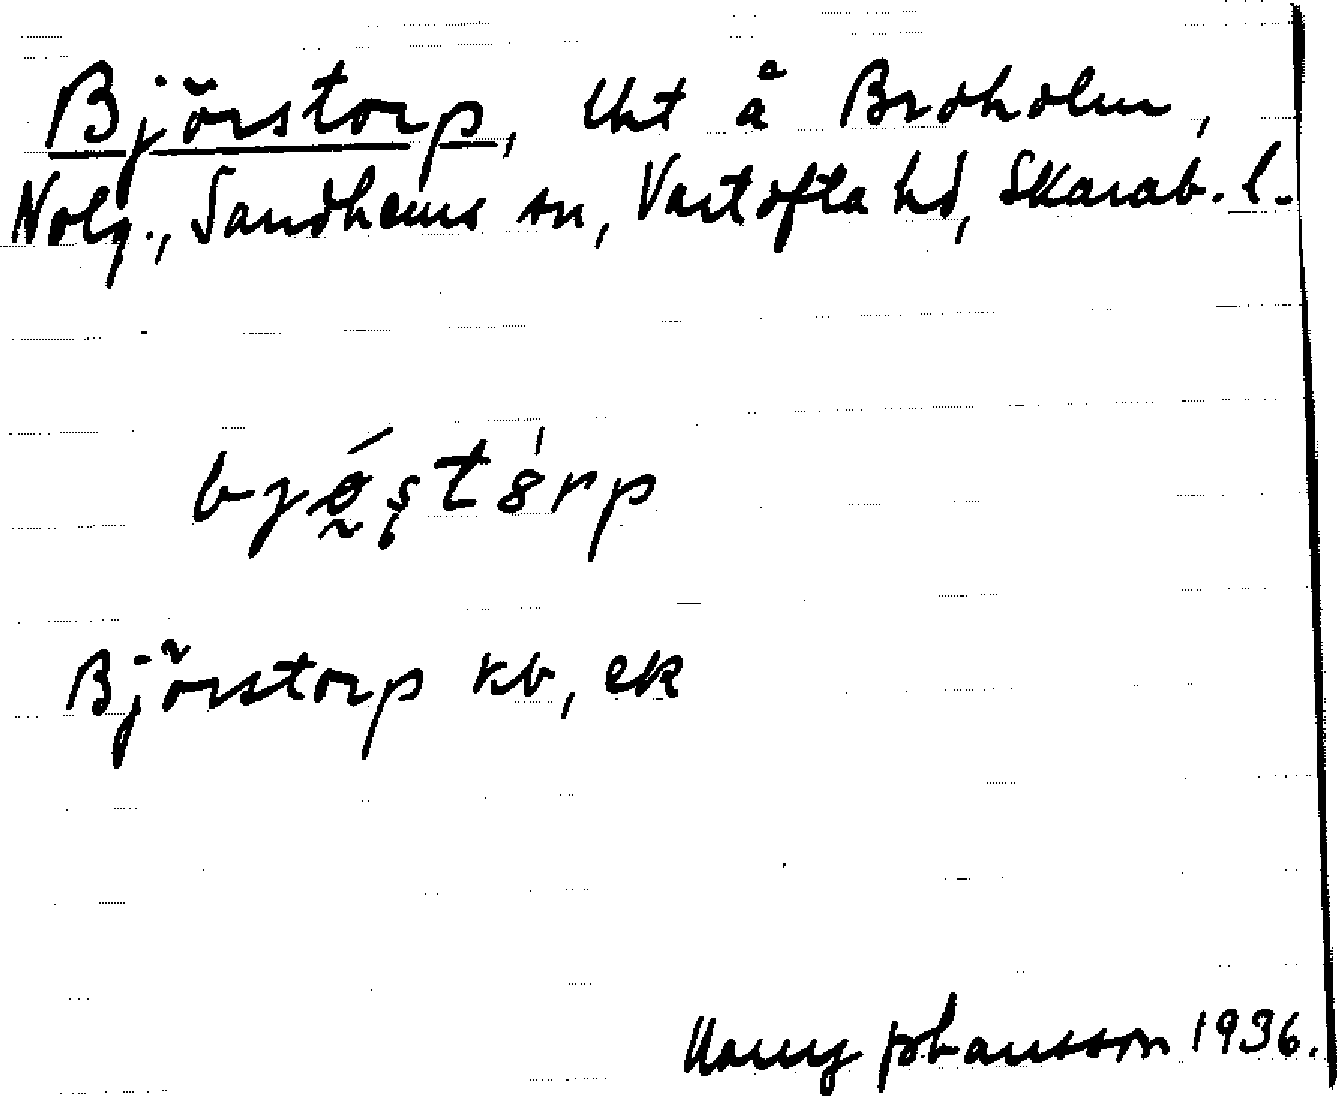 Björstorp, lht å Brdholm,
Nolg., Sandhems sn, Vartofta hd, Skarab. l.
Björstorp kb, ek
Harry Johansson 1936.